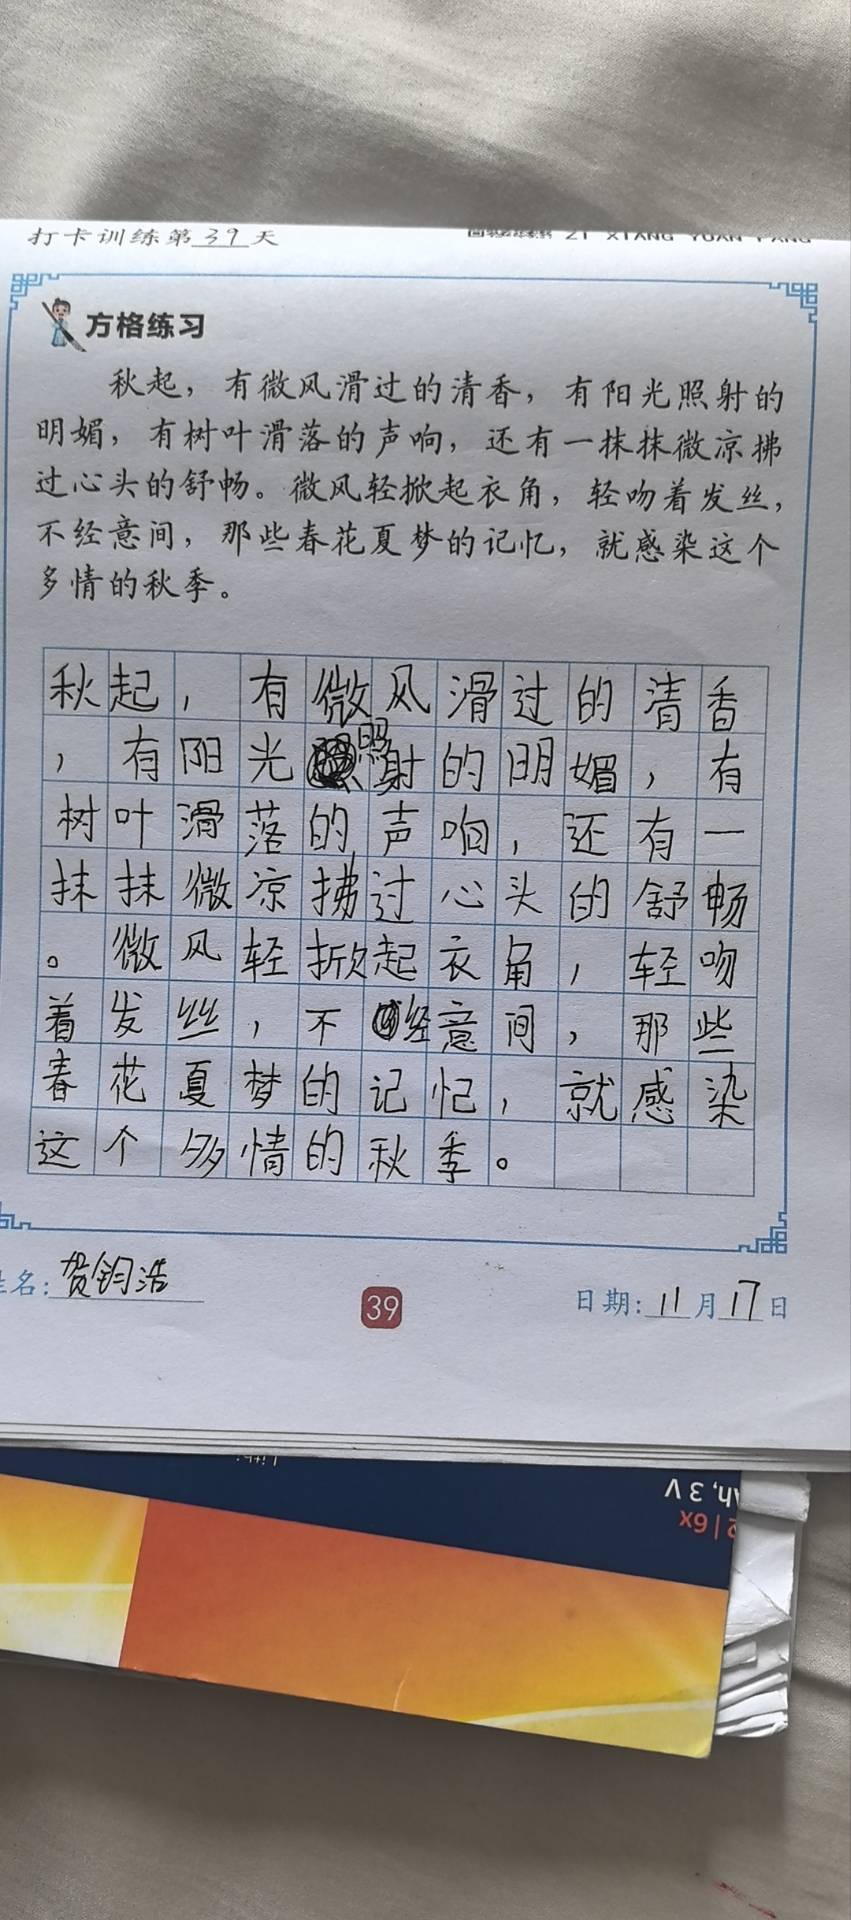 打卡训练第39天
ZI XIANG YUAN FANG
方格练习
秋起，有微风滑过的清香，有阳光照射的
明媚，有树叶滑落的声响，还有一抹抹微凉拂
过心头的舒畅。微风轻掀起衣角，轻吻着发丝，
不经意间，那些春花夏梦的记忆，就感染这个
多情的秋季。
秋起，有微风滑过的清香
，有阳光照射的明媚，有
树叶滑落的声响，还有一
抹抹微凉拂过心头的舒畅
。微风轻掀起衣角，轻吻
着发丝，不经意间，那些
春花夏梦的记忆，就感染
这个多情的秋季。
姓名：贺钧浩
39
日期：11月17日
Ah, 3 V
2 | 6x